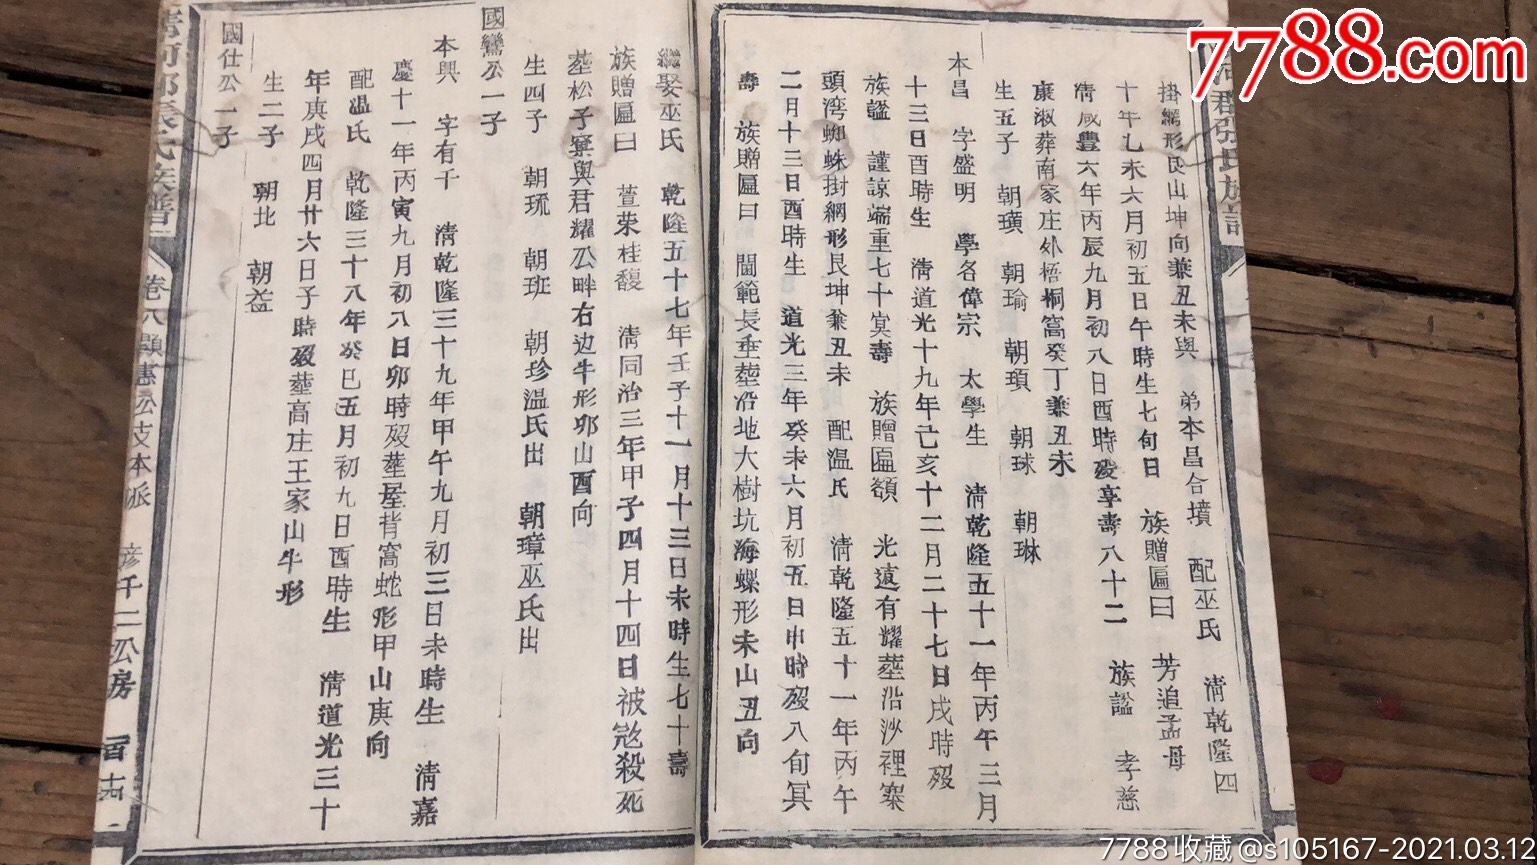 7788.com
掛網形艮山坤向兼丑未與　弟本昌合墳　配巫氏　清乾隆四
十年乙未六月初五日午時生七旬日　族贈匾曰　芳追孟母
清咸豐六年丙辰九月初八日酉時歿享壽八十二　族謚　孝慈
康淑葬南家庄外梧桐窩癸丁兼丑未
生五子　朝璜　朝瑜　朝瑣　朝球　朝琳
本昌　字盛明　學名偉宗　太學生　清乾隆五十一年丙午三月
十三日酉時生　清道光十九年亡亥十二月二十七日戌時歿
族謚　謹諒端重七十寞壽　族贈匾額　光遠有耀塟沿沙裡寨
頭湾蜘蛛掛網形艮坤兼丑未　配温氏　清乾隆五十一年丙午
二月十三日酉時生　道光三年癸未六月初五日申時歿八旬冥
壽　族贈匾曰　閫範長垂塟沿地大樹坑海螺形未山丑向
繼娶巫氏　乾隆五十七年壬子十一月十三日未時生七十壽
族贈匾曰　萱荣桂馥　清同治三年甲子四月十四日被冦殺死
塟松子寮與君耀公畔右边牛形卯山酉向
生四子　朝琉　朝班　朝珍温氏出　朝璋巫氏出
國鸞公一子
本興　字有千　清乾隆三十九年甲午九月初三日未時生　清嘉
慶十一年丙寅九月初八日卯時歿塟屋背窩蛇形甲山庚向
配温氏　乾隆三十八年癸巳五月初九日酉時生　清道光三十
年庚戌四月廿六日子時歿塟高庄王家山牛形
生二子　朝北　朝益
國仕公一子
清河郡張氏族譜　卷八顯憲公支本派　彦千二公房
7788收藏@s105167-2021.03.12